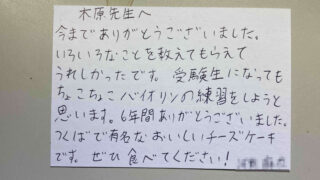 木原先生へ
今までありがとうございました。
いろいろなことを教えてもらえて
うれしかったです。受験生になっても
ちょこちょこバイオリンの練習をしようと
思います。6年間ありがとうございました。
つくばで有名なおいしいチーズケーキ
です。ぜひ食べてください!